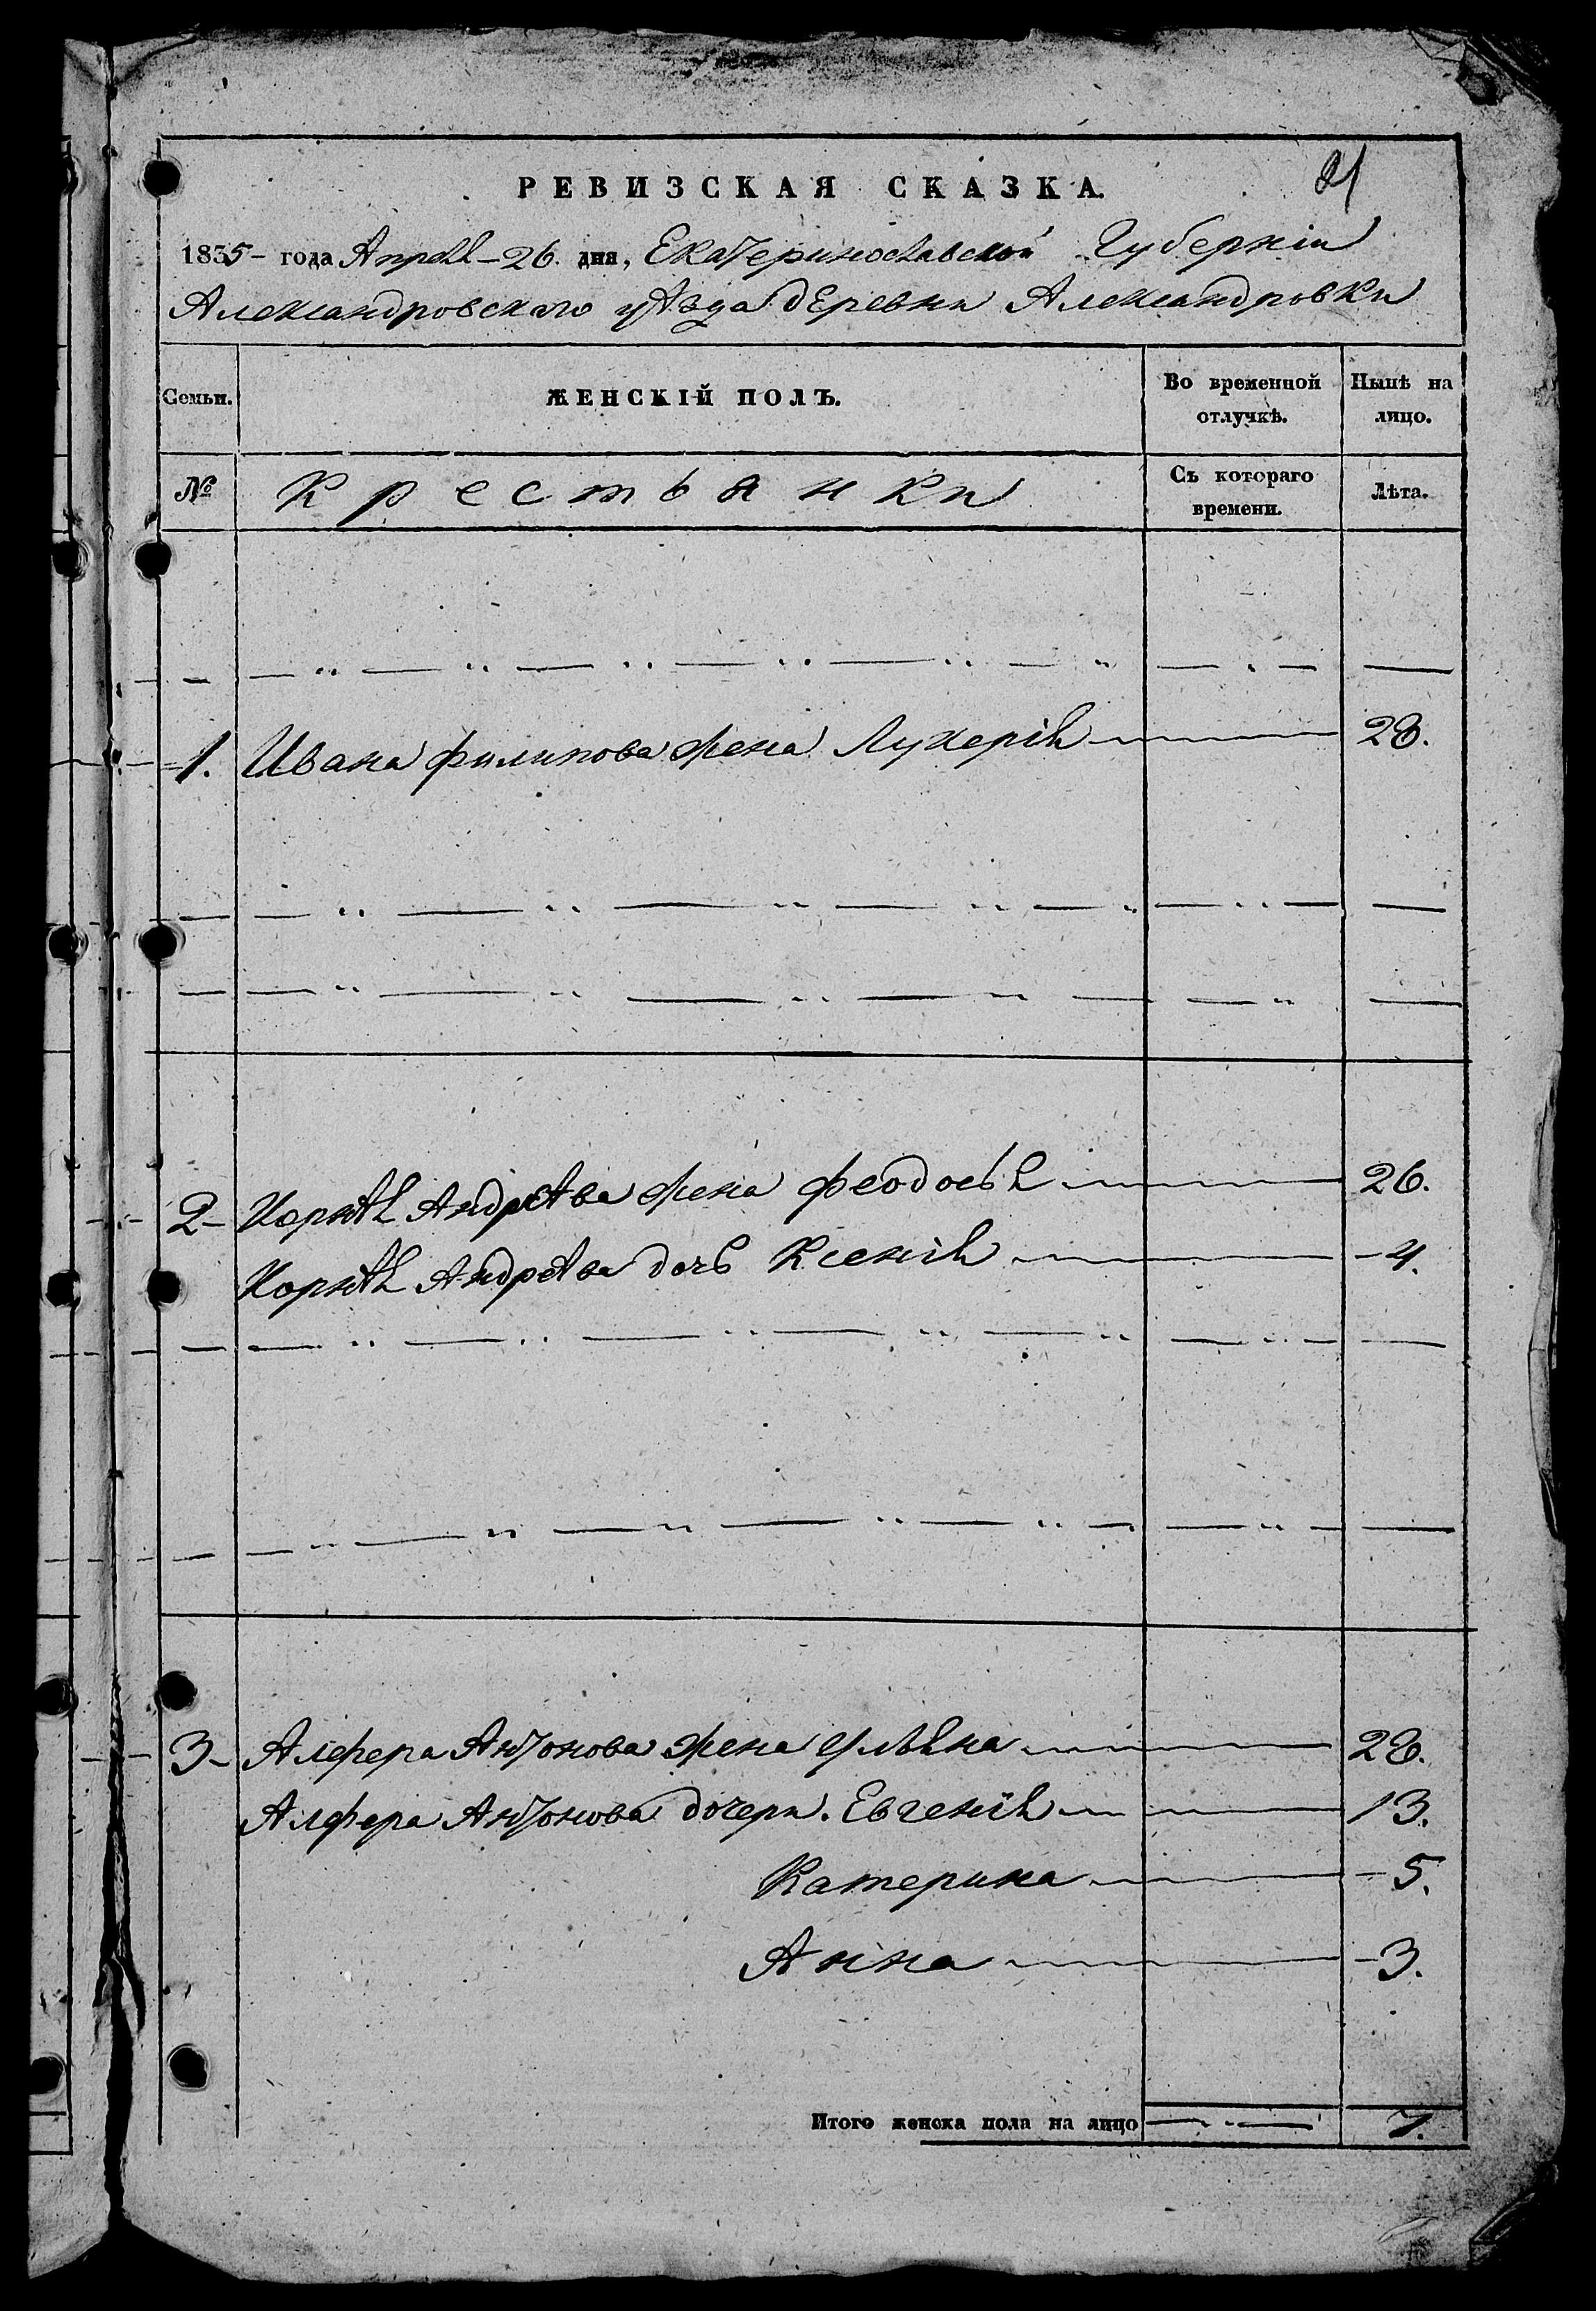 21
РЕВИЗСКАЯ СКАЗКА.
1835 – года Апреля – 26. дня, Екатеринославской Губерніи
Александровскаго уѣзда деревни Александровки
Семьи. ЖЕНСКІЙ ПОЛЪ. Во временной отлучкѣ. Нынѣ на лицо.
№ Крестьянки Съ котораго времени. Лѣта.
1. Ивана Филипова жена Лукерія 28.
2 – Корнѣя Андрѣева жена Феодосья 26.
Корнѣя Андрѣева дочь Ксенія – 4.
3 – Алфера Антонова жена Ульяна 28.
Алфера Антонова дочери. Евгенія 13.
Катерина – 5.
Анна – 3.
Итого женска пола на лицо 7.